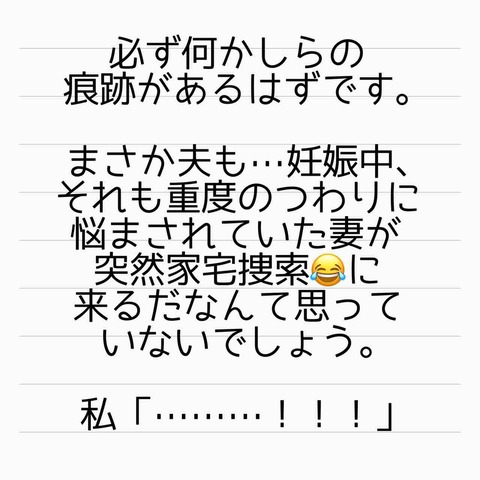 必ず何かしらの
痕跡があるはずです。
まさか夫も…妊娠中、
それも重度のつわりに
悩まされていた妻が
突然家宅捜索😂に
来るだなんて思って
いないでしょう。
私「………！！！」